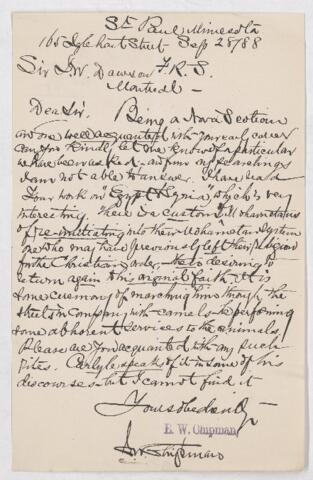 St Paul, Minesota
165 Iglehart Street Sep 28/88
Sir Wm Dawson F.R.S.
Montreal -
Dear Sir. Being a Nova Scotian
and one well acquainted with your early career
can you kindly let me know of a particular
we have been asked - and from my searchings
I am not able to answer. I have read
your work on "Egypt & Syria" which is very
interesting. There is a custom with Mohametans
of re-initiating into their Mohametan System
one who may have previously left their religion
for the Christian and desiring to
return again to his original faith. It is
some ceremony of marching him through the
streets in company with camels - he performing
some abhorent services to the animals
Please are you acquainted with any such
rites. Carlyle speaks of it in some of his
discourses - but I cannot find it
Yours obediently
E. W. Chipman
Chipman